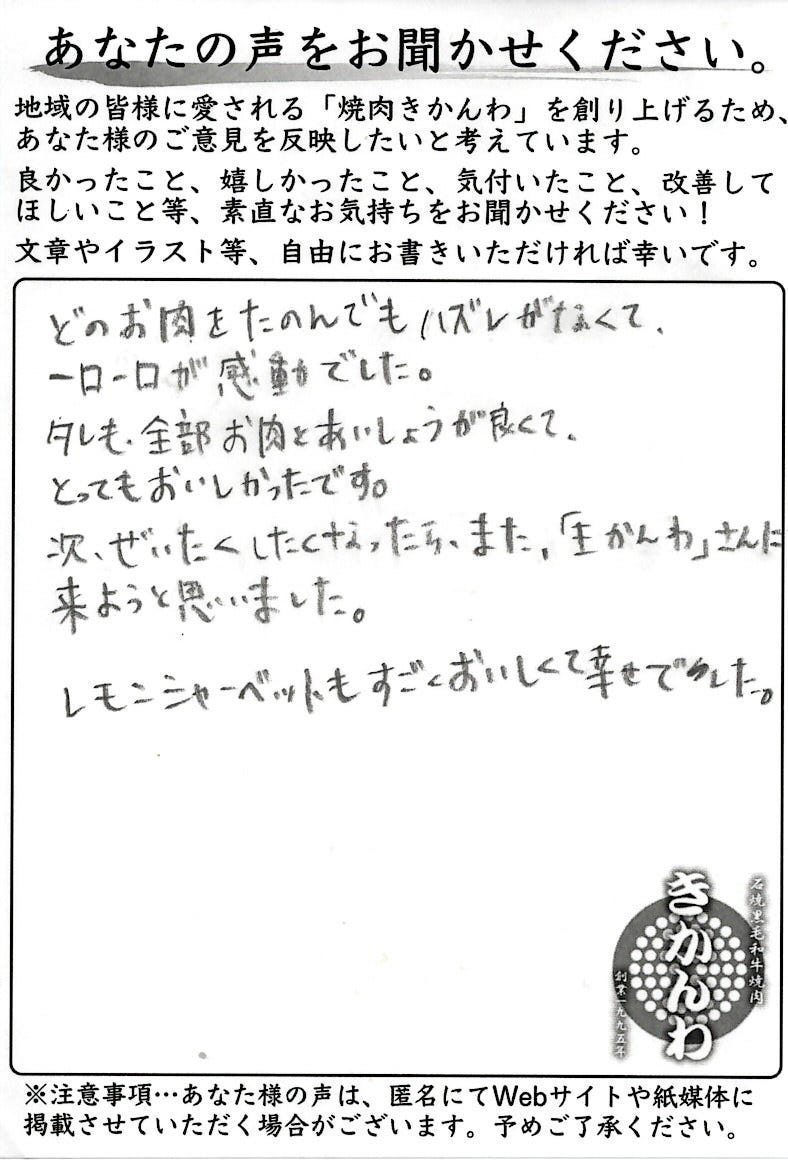 あなたの声をお聞かせください。
地域の皆様に愛される「焼肉きかんわ」を創り上げるため、
あなた様のご意見を反映したいと考えています。
良かったこと、嬉しかったこと、気付いたこと、改善して
ほしいこと等、素直なお気持ちをお聞かせください！
文章やイラスト等、自由にお書きいただければ幸いです。
どのお肉をたのんでもハズレがなくて、
一口一口が感動でした。
タレも、全部お肉とあいしょうが良くて、
とってもおいしかったです。
次、ぜいたくしたくなったら、また、「生かんわ」さんに
来ようと思いました。
レモンシャーベットもすごくおいしくて幸せでした。
石焼黒毛和牛焼肉
きかんわ
創業一九九五年
※注意事項…あなた様の声は、匿名にてWebサイトや紙媒体に
掲載させていただく場合がございます。予めご了承ください。